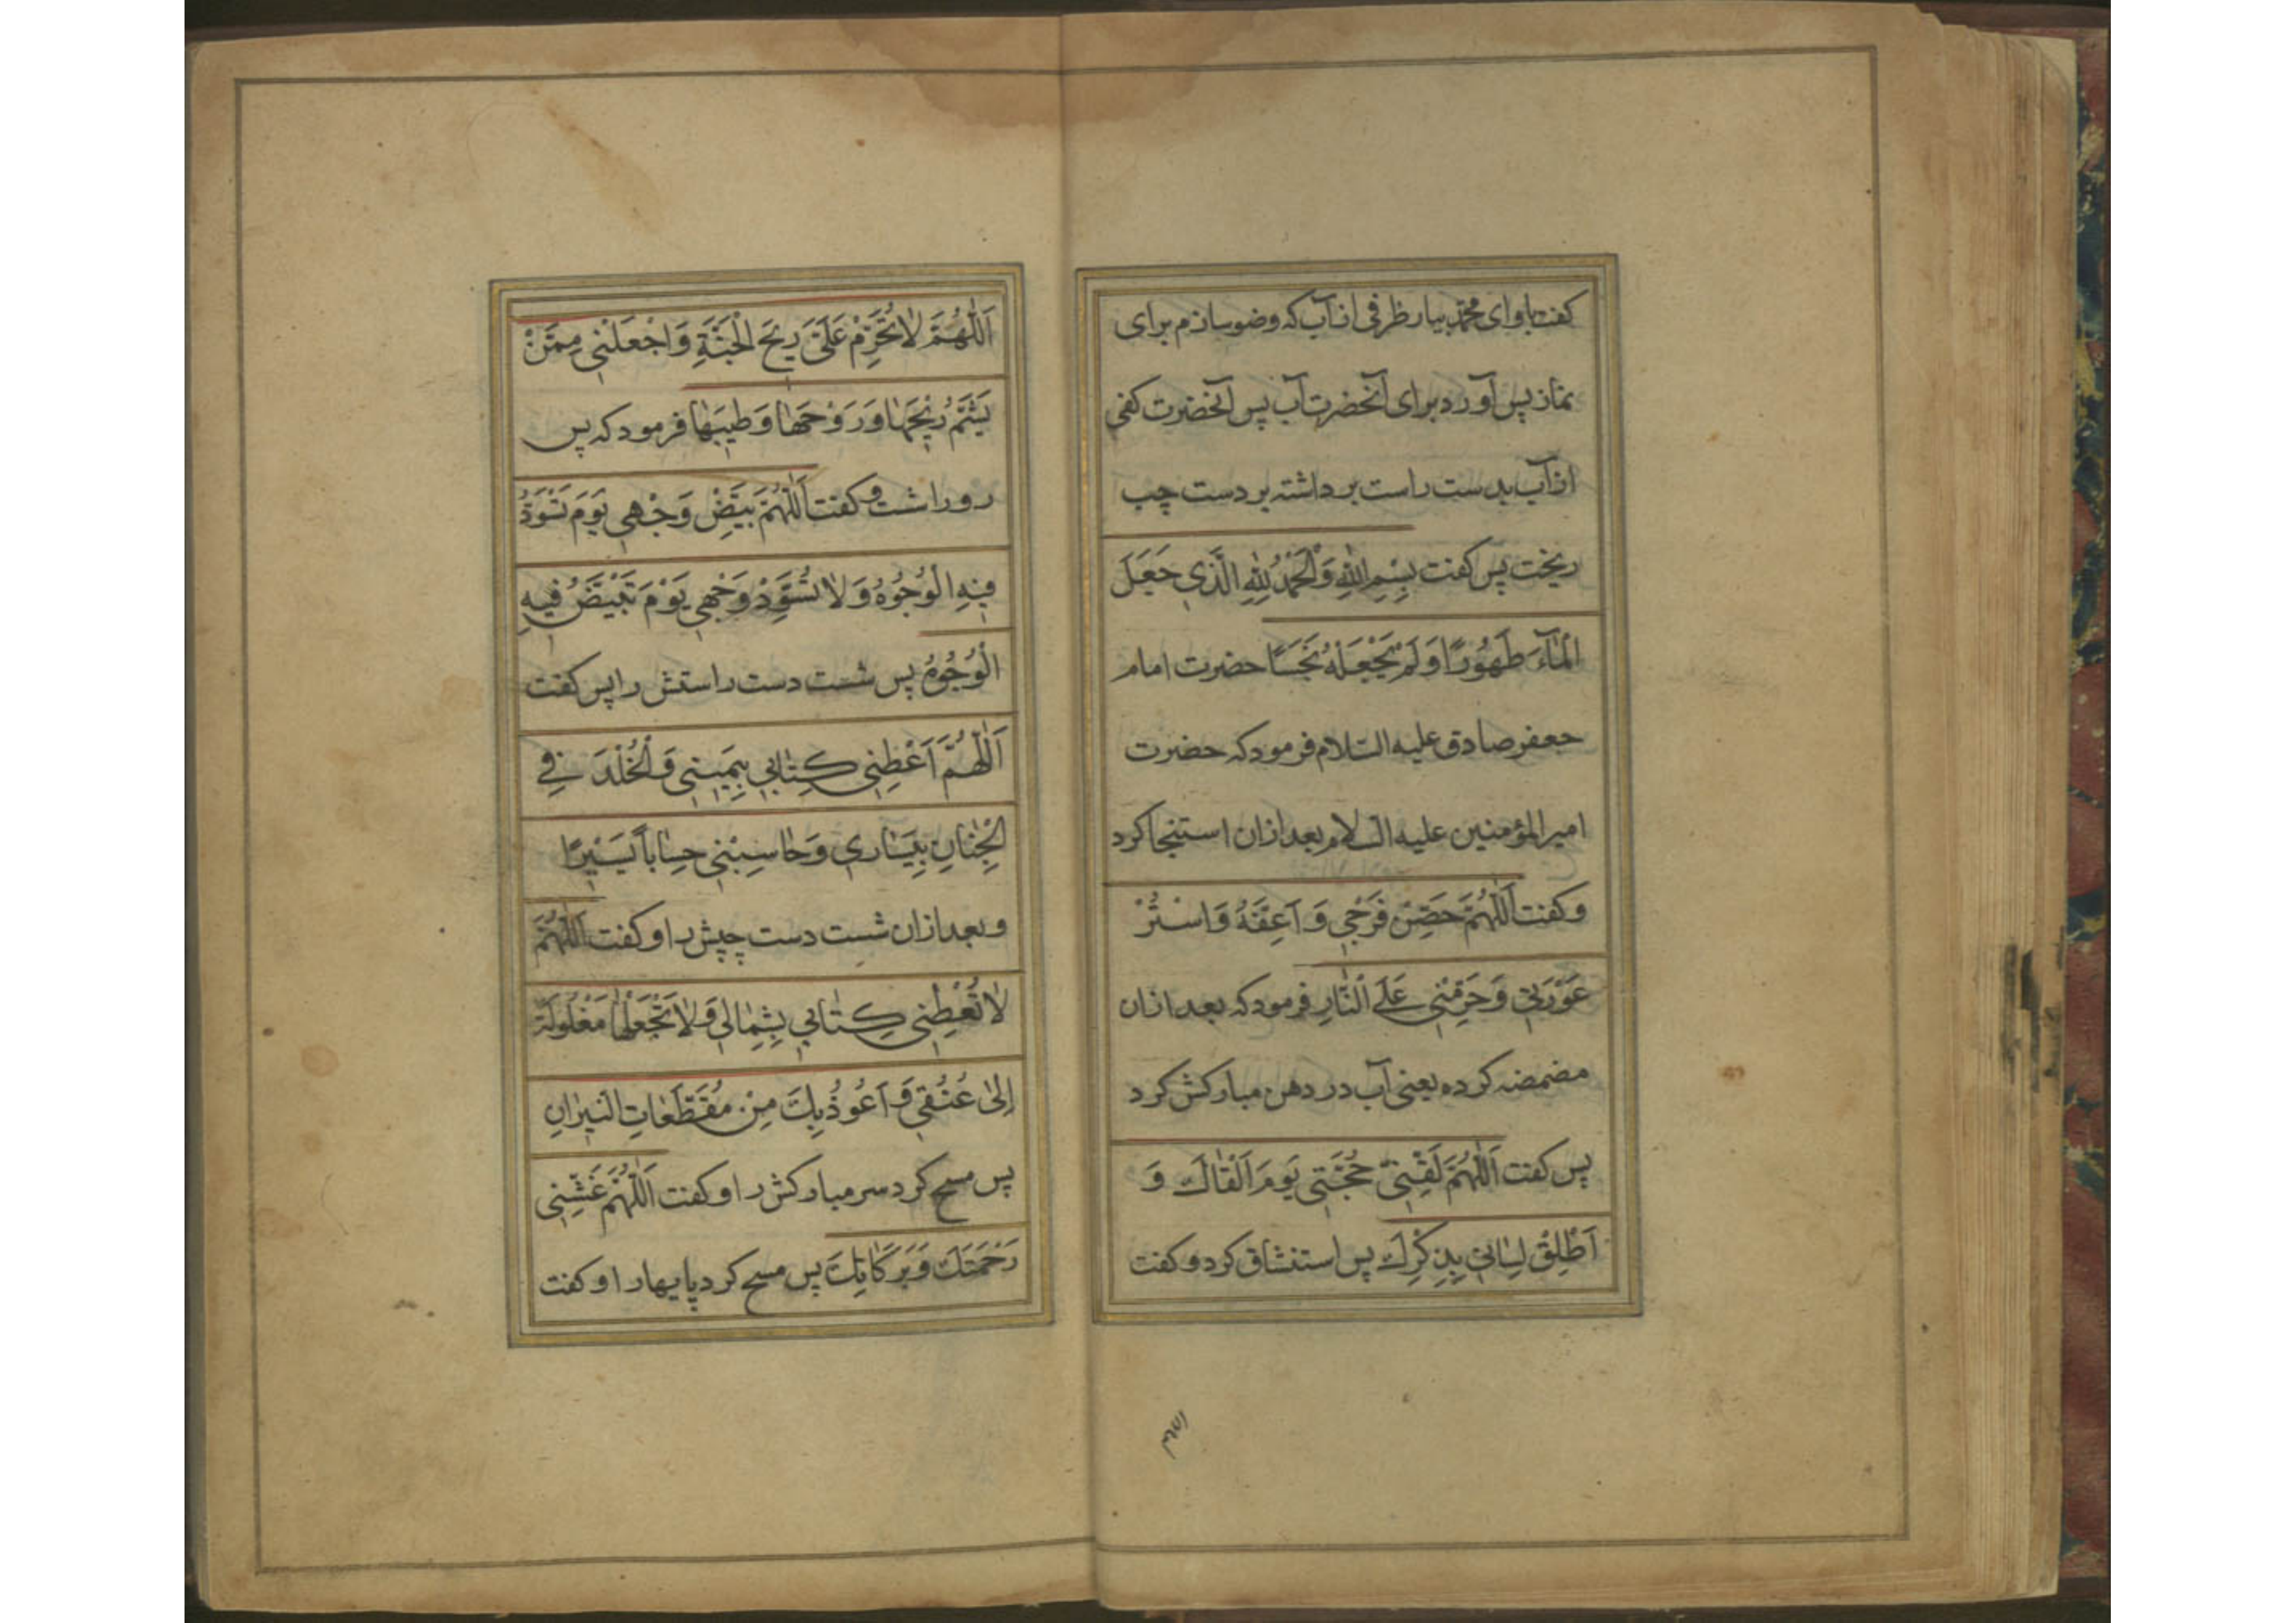 کفت باو ای محمّد بیار ظرفی از آب که وضو سازم برای
نماز پس آورد برای آنحضرت آب پس آنحضرت کفی
از آب بدست راست برداشته بر دست چب
ریخت پس کفت بِسْمِ اللهِ وَالْحَمْدُ لِلّٰهِ الَّذِي جَعَلَ
الْمَآءَ طَهُورًا وَلَمْ يَجْعَلْهُ نَجَسًا حضرت امام
جعفر صادق علیه السّلام فرمود که حضرت
امیر المؤمنین علیه السّلام بعد از ان استنجا کرد
و کفت اَللّٰهُمَّ حَصِّنْ فَرْجِي وَ اَعِفَّهُ وَاسْتُرْ
عَوْرَتِي وَحَرِّمْنِي عَلَى النَّارِ فرمود که بعد از ان
مضمضه کرده یعنی آب در دهن مبارکش کرد
پس کفت اَللّٰهُمَّ لَقِّنِي حُجَّتِي يَومَ اَلْقٰاكَ وَ
اَطْلِقْ لِسٰانِي بِذِكْرِكَ پس استنشاق کرد و کفت
اَللّٰهُمَّ
اَللّٰهُمَّ لٰا تُحَرِّمْ عَلَيَّ رِيحَ الْجَنَّةِ وَاجْعَلْنِي مِمَّنْ
يَشَمُّ رِيْحَهٰا وَ رَوْحَهٰا وَطِيبَهٰا فرمود که پس
رو را شست و کفت اَللّٰهُمَّ بَيِّضْ وَجْهِي يَوَمَ تَسْوَدُّ
فِيهِ الْوُجُوهُ وَلٰا تُسَوِّدْ وَجْهِي يَوْمَ تَبْيَضُّ فِيهِ
الْوُجُوهُ پس شست دست راستش را پس کفت
اَللّٰهُمَّ اَعْطِنِي كِتٰابِي بِيَمِينِي وَالْخُلْدَ فِي
الْجِنٰانِ بِيَسٰارِي وَحٰاسِبْنِي حِسٰاباً يَسْيرًا
و بعد از ان شست دست چپش را و کفت اَللّٰهُمَّ
لٰا تُعْطِنِي كِتٰابِي بِشِمٰالِي وَلٰا تَجْعَلْهٰا مَغْلُولَةً
اِلىٰ عُنُقِي وَ اَعُوذُ بِكَ مِنْ مُقَطَّعٰاتِ النّيرٰانِ
پس مسح کرد سر مبارکش را و کفت اَللّٰهُمَّ غَشِّنِي
رَحْمَتَكَ وَبَرَكٰاتِكَ پس مسح کرد پایها را و کفت